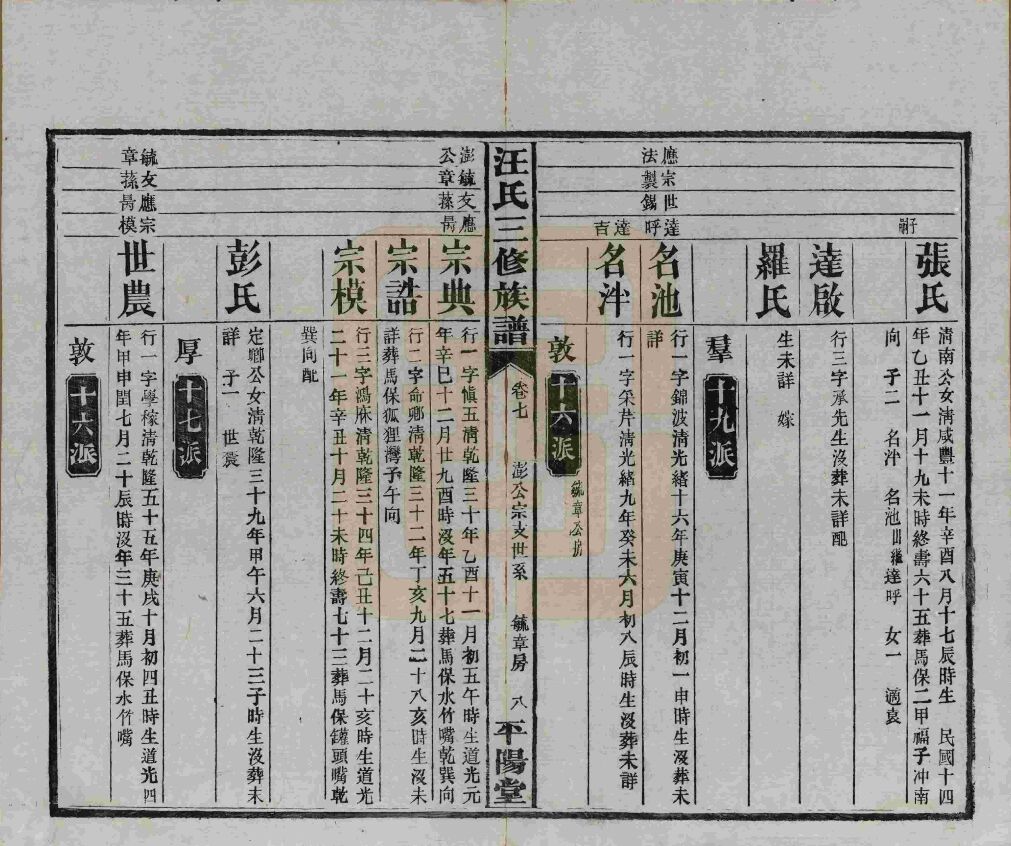 附
張氏
清南公女清咸豐十一年辛酉八月十七辰時生 民國十四
年乙丑十一月十九未時終壽六十五葬馬保二甲福子冲南
向 子二 名泮 名池出繼達呼 女一 適袁
達啟
行三字承先生沒葬未詳配
羅氏
生未詳 嫁
羣 十九派
應宗世達呼
法製錫
名池
行一字錦波清光緒十六年庚寅十二月初一申時生沒葬未
詳
達吉
名泮
行一字采芹清光緒九年癸未六月初八辰時生沒葬未詳
敦 十六派 毓章公房
汪氏三修族譜
卷七 澎公宗支世系 毓章房 八 平陽堂
澎毓友應
公章蓀喬
宗典
行一字愼五清乾隆三十年乙酉十一月初五午時生道光元
年辛巳十二月廿九酉時沒年五十七葬馬保水竹嘴乾巽向
宗誥
行二字命卿清乾隆三十二年丁亥九月二十八亥時生沒未
詳葬馬保狐狸灣子午向
宗模
行三字鴻庥清乾隆三十四年己丑十二月二十亥時生道光
二十一年辛丑十月二十未時終壽七十三葬馬保罐頭嘴乾
巽向配
彭氏
定鄉公女清乾隆三十九年甲午六月二十三子時生沒葬未
詳 子一 世農
厚 十七派
毓友應宗
章蓀喬模
世農
行一字學稼清乾隆五十五年庚戌十月初四丑時生道光四
年甲申閏七月二十辰時沒年三十五葬馬保水竹嘴
敦 十六派